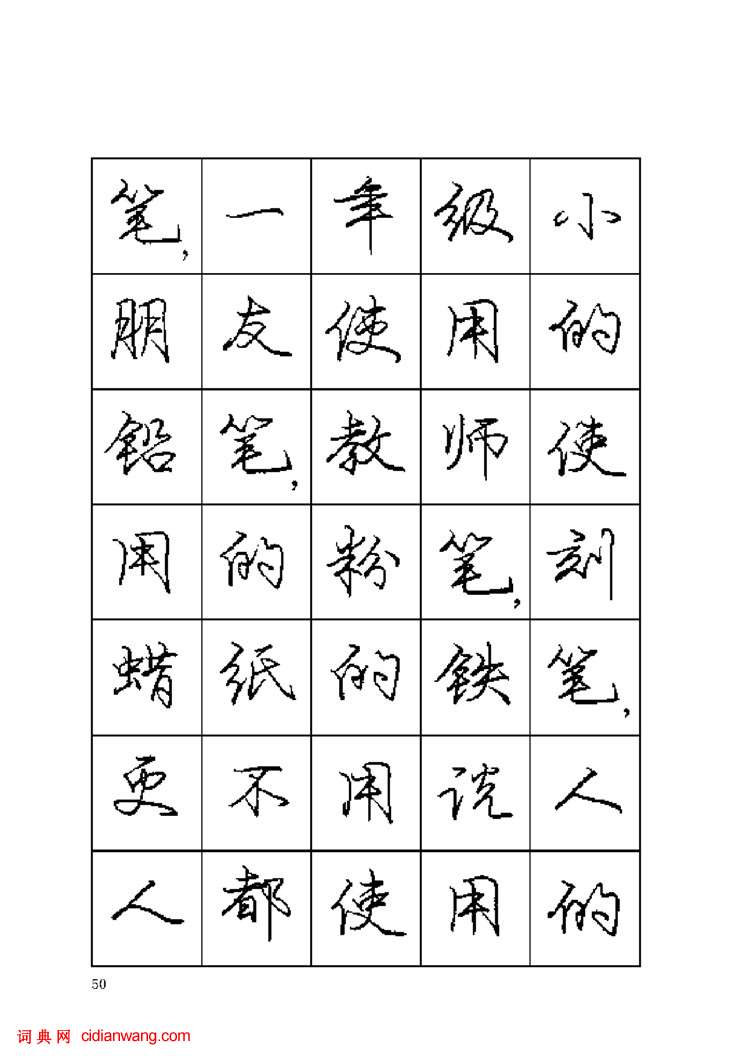 笔，一年级小
朋友使用的
铅笔，教师使
用的粉笔，刻
蜡纸的铁笔，
更不用说人
人都使用的
50
词典网 cidianwang.com